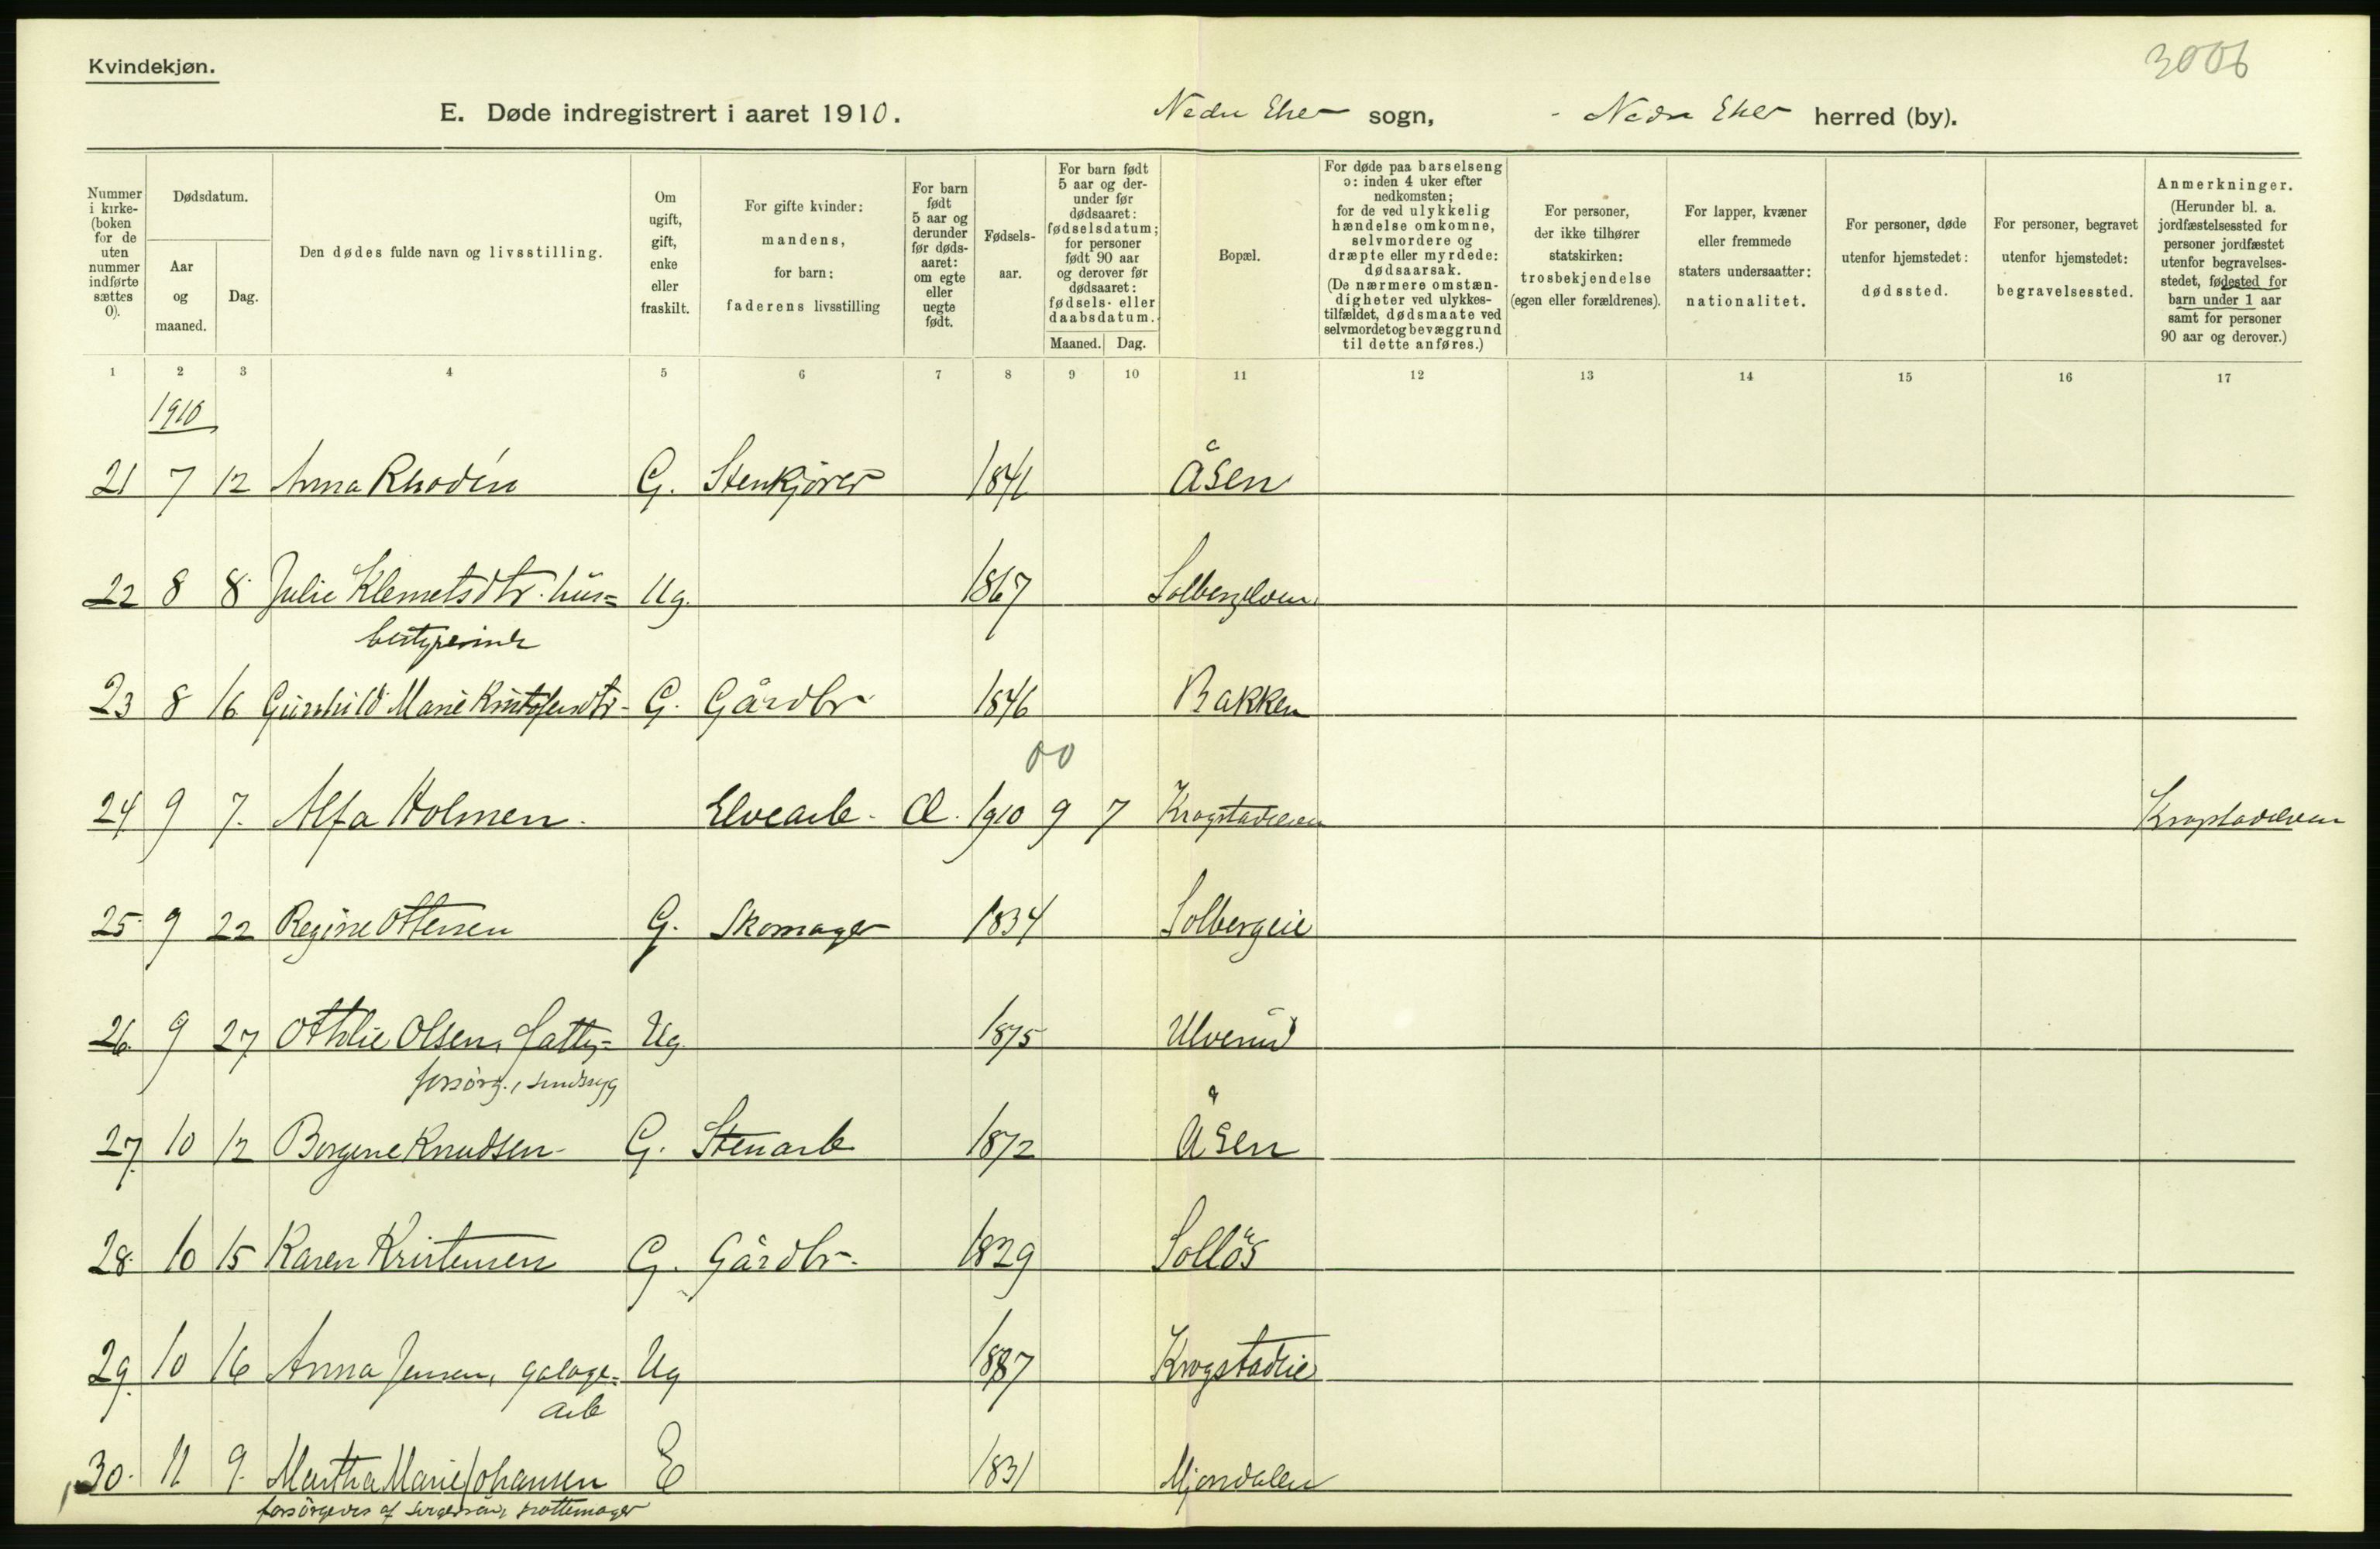 Kvindekjøn.
3006
E. Døde indregistrert i aaret 1910. Nedre Eker sogn, - Nedre Eker herred (by).
Nummer i kirkeboken for de uten nummer indførte sættes 0).
Dødsdatum.
Aar og maaned.
Dag.
Den dødes fulde navn og livsstilling.
Om ugift, gift, enke eller fraskilt.
For gifte kvinder: mandens, for barn: faderens livsstilling
For barn født 5 aar og derunder før dødsaaret: om egte eller uegte født.
Fødselsaar.
For barn født 5 aar og derunder før dødsaaret: fødselsdatum; for personer født 90 aar og derover før dødsaaret: fødsels- eller daabsdatum.
Maaned. Dag.
Bopæl.
For døde paa barselseng ɔ: inden 4 uker efter nedkomsten; for de ved ulykkelig hændelse omkomne, selvmordere og dræpte eller myrdede: dødsaarsak. (De nærmere omstændigheter ved ulykkestilfældet, dødsmaate ved selvmordet og bevæggrund til dette anføres.)
For personer, der ikke tilhører statskirken: trosbekjendelse (egen eller forældrenes).
For lapper, kvæner eller fremmede staters undersaatter: nationalitet.
For personer, døde utenfor hjemstedet: dødssted.
For personer, begravet utenfor hjemstedet: begravelsessted.
Anmerkninger. (Herunder bl. a. jordfæstelsessted for personer jordfæstet utenfor begravelsesstedet, fødested for barn under 1 aar samt for personer 90 aar og derover.)
1 2 3 4 5 6 7 8 9 10 11 12 13 14 15 16 17
1910
21 7 12 Anna Rhodin G. Stenkjører 1841 Åsen
22 8 8 Julie Klemetsdtr. hus= Ug. 1867 Solbergelven
bestyrerinde
23 8 16 Gunhild Marie Kristofersdtr G. Gårdbr 1846 Bakken
00
24 9 7. Alfa Holmen. Elvearb. Æ. 1910 9 7 Krogstadelven Krogstadelven
25 9 22 Regine Ottersen G. Skomager 1834 Solbergeie
26 9 27 Othilie Olsen, fatty= Ug. 1875 Ulverud
forsørg., sindssyg
27 10 12 Borgene Knudsen G. Stenarb 1872 Åsen
28. 10 15 Karen Kristensen G. Gårdbr. 1829 Sollås
29 10 16 Anna Jensen, galoge= Ug 1887 Krogstadlie
arb
30. 11 9. Martha Marie Johansen E 1831 Mjøndalen
forsörgedes af pottemager